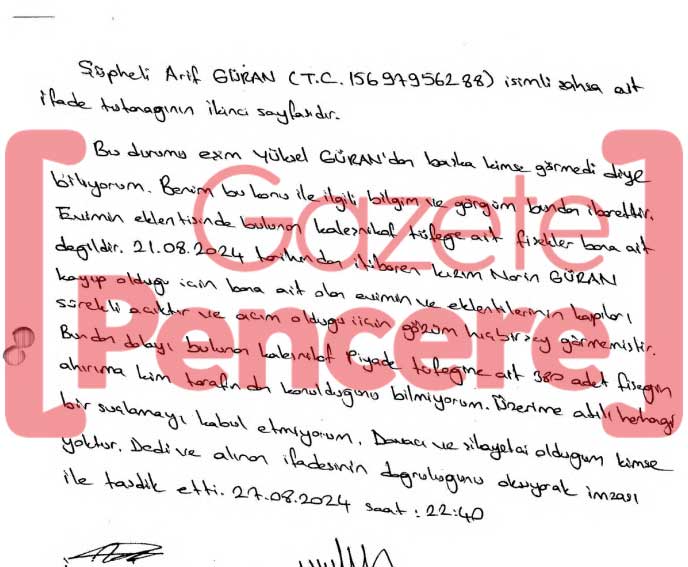 Şüpheli Arif GÜRAN (T.C. 15697956288) isimli şahsa ait
ifade tutanağının ikinci sayfasıdır.
Bu durumu eşim Yüksel GÜRAN'dan başka kimse görmedi diye
biliyorum. Benim bu konu ile ilgili bilgim ve görgüm bundan ibarettir.
Evimin eklentisinde bulunan kaleşnikof tüfeğe ait fişekler bana ait
değildir. 21.08.2024 tarihinden itibaren kızım Narin GÜRAN
kayıp olduğu için bana ait olan evimin ve eklentilerinin kapıları
sürekli açıktır ve acım olduğu için gözüm hiçbirşey görmemiştir.
Bundan dolayı bulunan kaleşnikof Piyade tüfeğine ait 380 adet fişeğin
ahırıma kim tarafından konulduğunu bilmiyorum. Üzerime atılı herhangi
bir suçlamayı kabul etmiyorum. Davacı ve şikayetçi olduğum kimse
yoktur. Dedi ve alınan ifadesinin doğruluğunu okuyarak imzası
ile tasdik etti. 27.08.2024 saat: 22:40
Gazete
Pencere